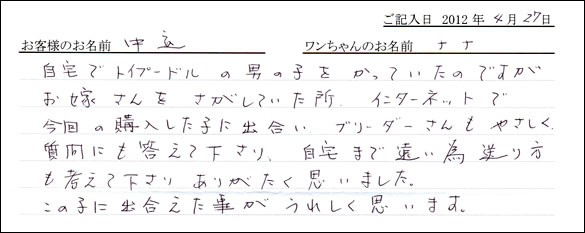 ご記入日 2012年4月27日
お客様のお名前 中立 ワンちゃんのお名前 ナナ
自宅でトイプードルの男の子をかっていたのですが
お嫁さんをさがしていた所、インターネットで
今回の購入した子に出合い ブリーダーさんもやさしく、
質問にも答えて下さり、自宅まで遠い為送り方
も考えて下さり ありがたく思いました。
この子に出合えた事が うれしく思います。